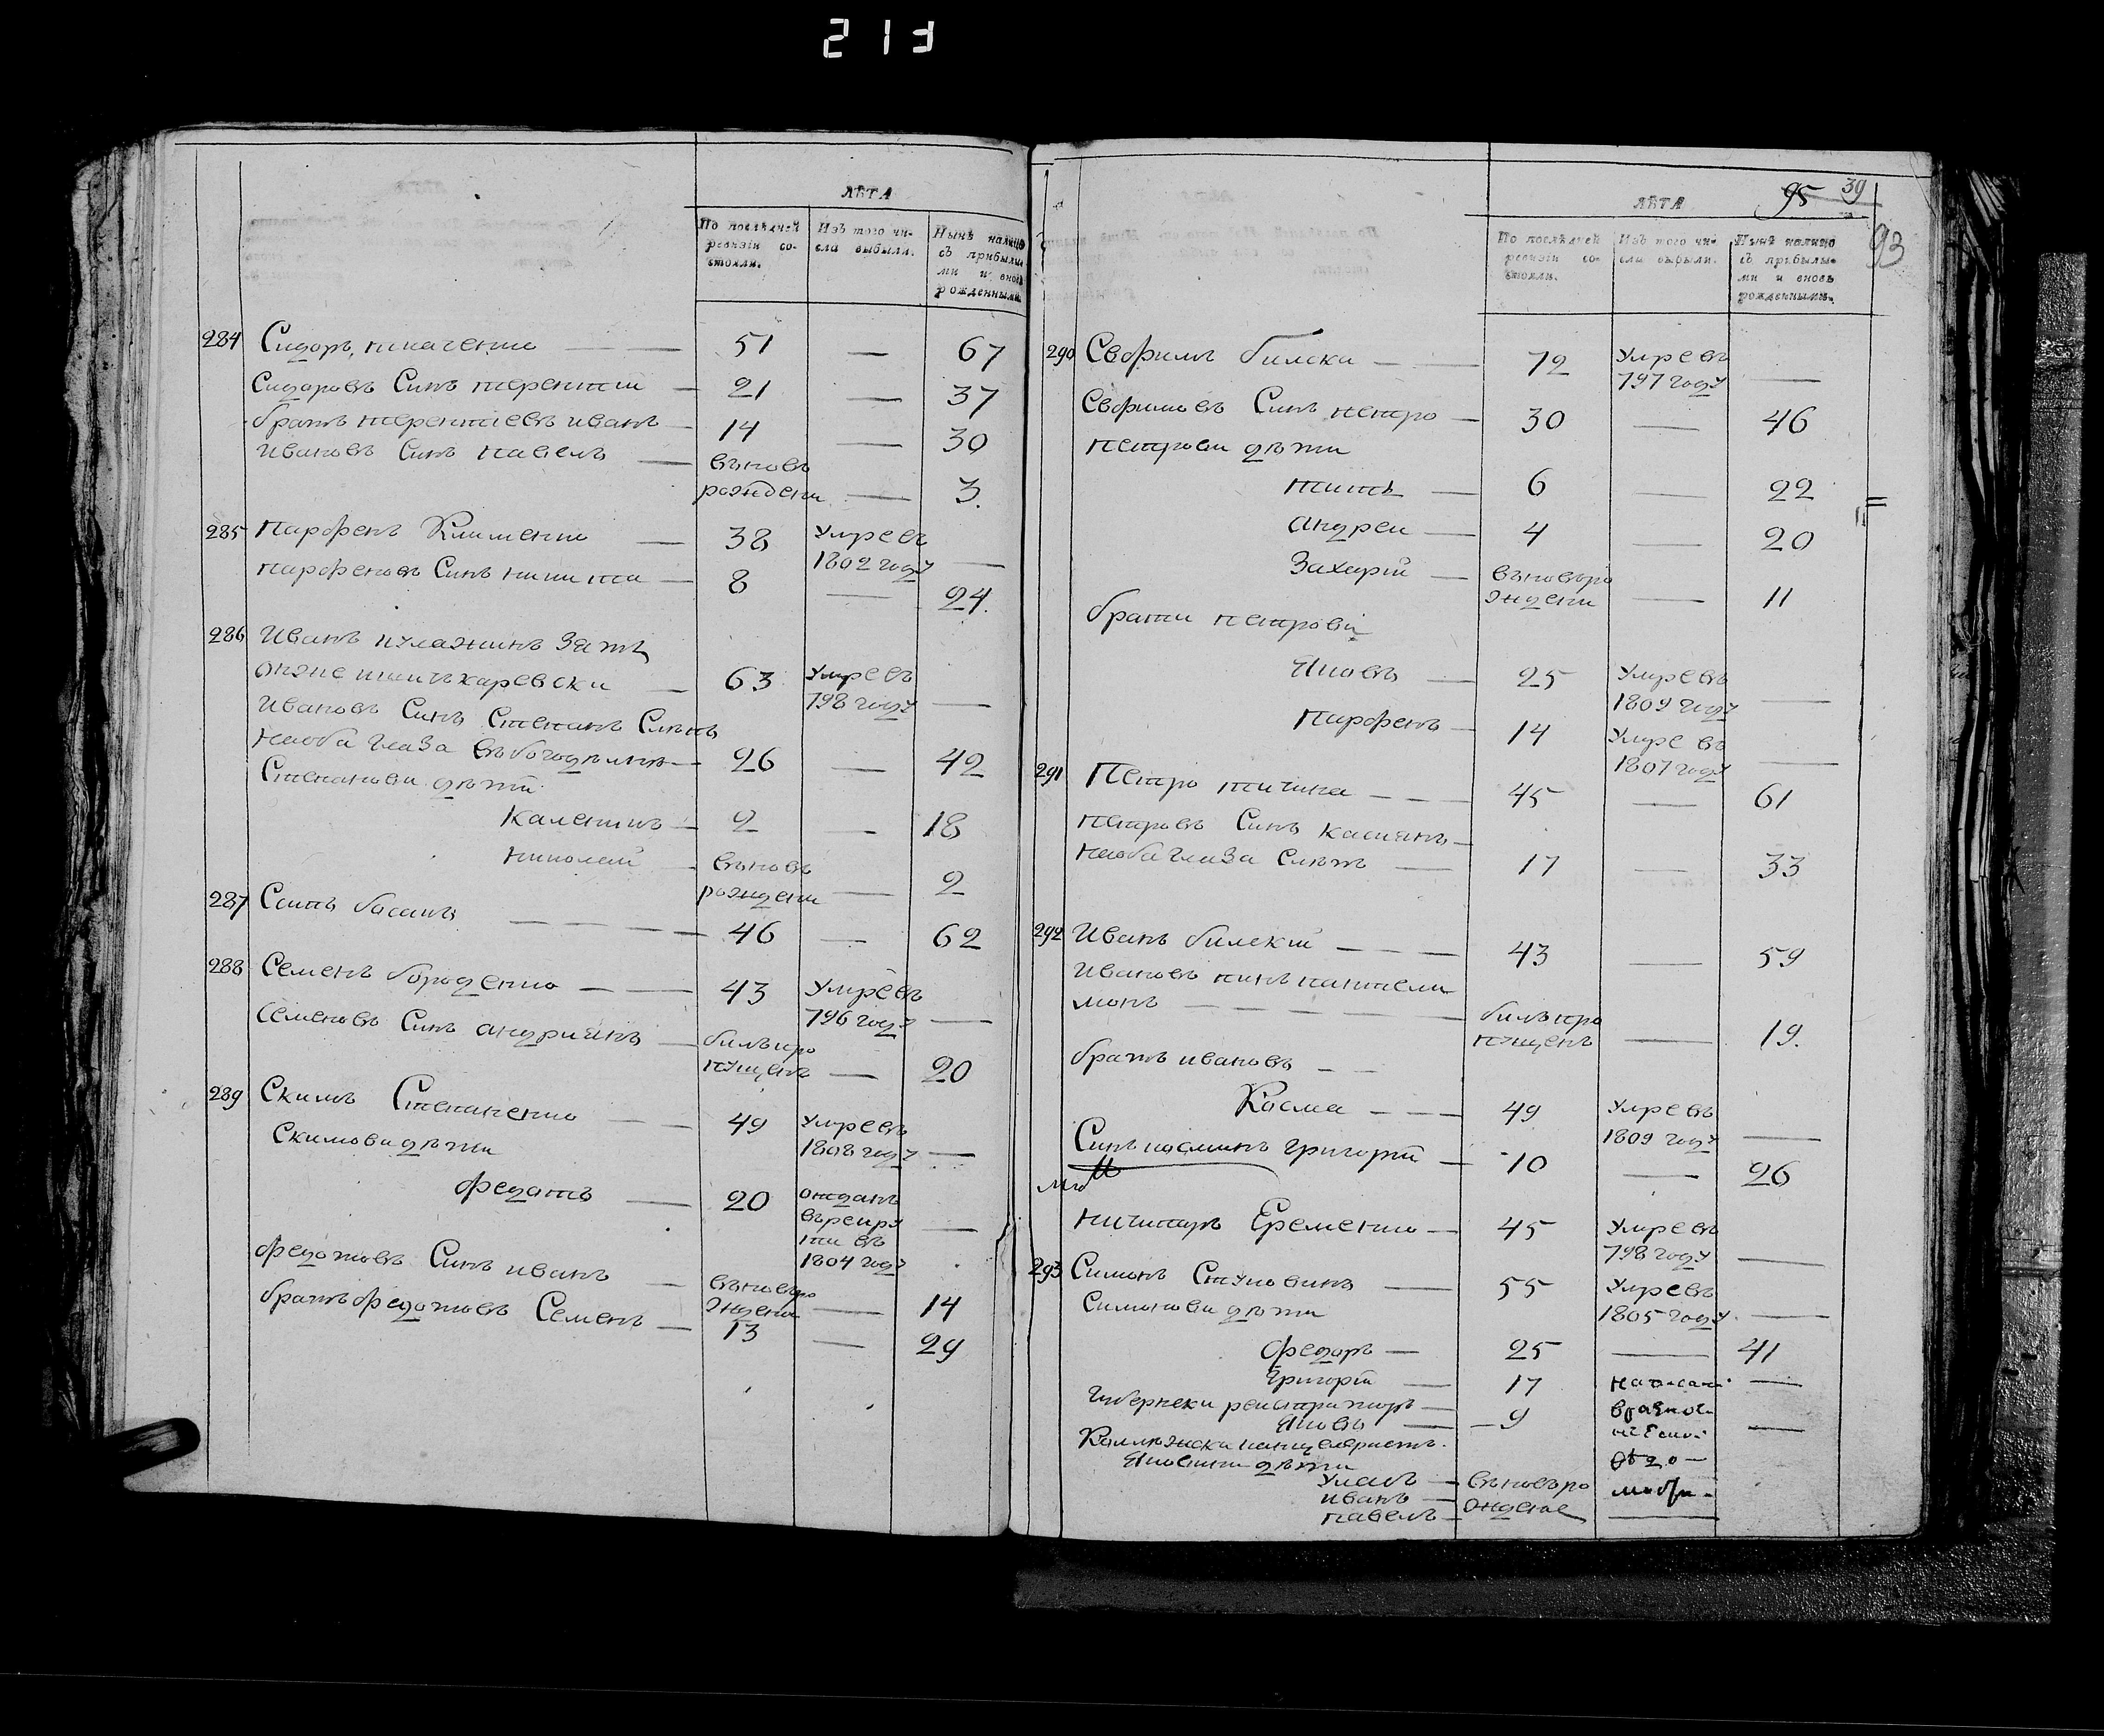 213
ЛѢТА
По послѣдней ревизіи состояли.
Изъ того числа выбыли.
Нынѣ налицо съ прибылыми и вновь рожденными.
284 Сидоръ — 51 — 67
Сидоровъ Синъ терентии — 21 — 37
братъ терентіевъ иванъ — 14 — 30
ивановъ Синъ павелъ — вьновъ
рождени — 3.
285 парфенъ Клименко — 38 Умре въ
1802 году —
парфеновъ Синъ никита — 8 — 24.
286 Иванъ кулажинъ Зять
онже — 63 Умре въ
798 году —
ивановъ Синъ Степанъ Слѣпъ
наоба глаза въ — 26 — 42
Степанови дѣти
каленикъ — 2 — 18
николай — вьновъ
рождени — 2
287 басанъ — 46 — 62
288 Семенъ бороденко — 43 Умре въ
796 году —
Семеновъ Синъ андриянъ — билъ про
пущенъ — 20
289 Скимъ Степаненко — 49 Умре въ
1808 году —
Скимови дѣти
федотъ — 20 отданъ
въ рекру
ти въ
1804 году —
федотовъ Синъ иванъ — вьновъро
ждени — 14
братъ федотовъ Семенъ — 13 — 29
95 39
93
ЛѢТА
По послѣдней ревизіи состояли.
Изъ того числа выбыли.
Нынѣ налицо съ прибылыми и вновь рожденными.
290 Своримъ — 72 Умре въ
797 году —
Синъ петро — 30 — 46
петрови дѣти
титъ — 6 — 22
андреи — 4 — 20
Захарій — вьновъро
ждени — 11
брати петрови
Яковъ — 25 Умре въ
1809 году —
парфенъ — 14 Умре въ
1807 году —
291 Петро — 45 — 61
петровъ Синъ касиянъ —
наоба глаза слѣпъ — 17 — 33
292 Иванъ билскій — 43 — 59
ивановъ пантели
монъ — билъ про
пущенъ — 19.
братъ ивановъ —
Косма — 49 Умре въ
1809 году —
Синъ косминъ григорій — 10 — 26
ничипоръ Еременко — 45 Умре въ
798 году —
293 Симонъ — 55 Умре въ
1805 году —
Симонови дѣти
федоръ — 25 — 41
Григорій — 17 —
Губернски регистраторъ —
Яковъ — 9 —
канцеляристъ.
дѣти
иванъ — вьновъро
павелъ — ждение —